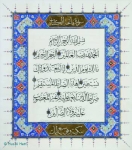 بسم الله الرحمن الرحيم
الحمد لله رب العالمين
الرحمن الرحيم مالك يوم الدين
إياك نعبد وإياك نستعين
اهدنا الصراط المستقيم صراط
الذين أنعمت عليهم غير المغضوب
عليهم ولا الضالين